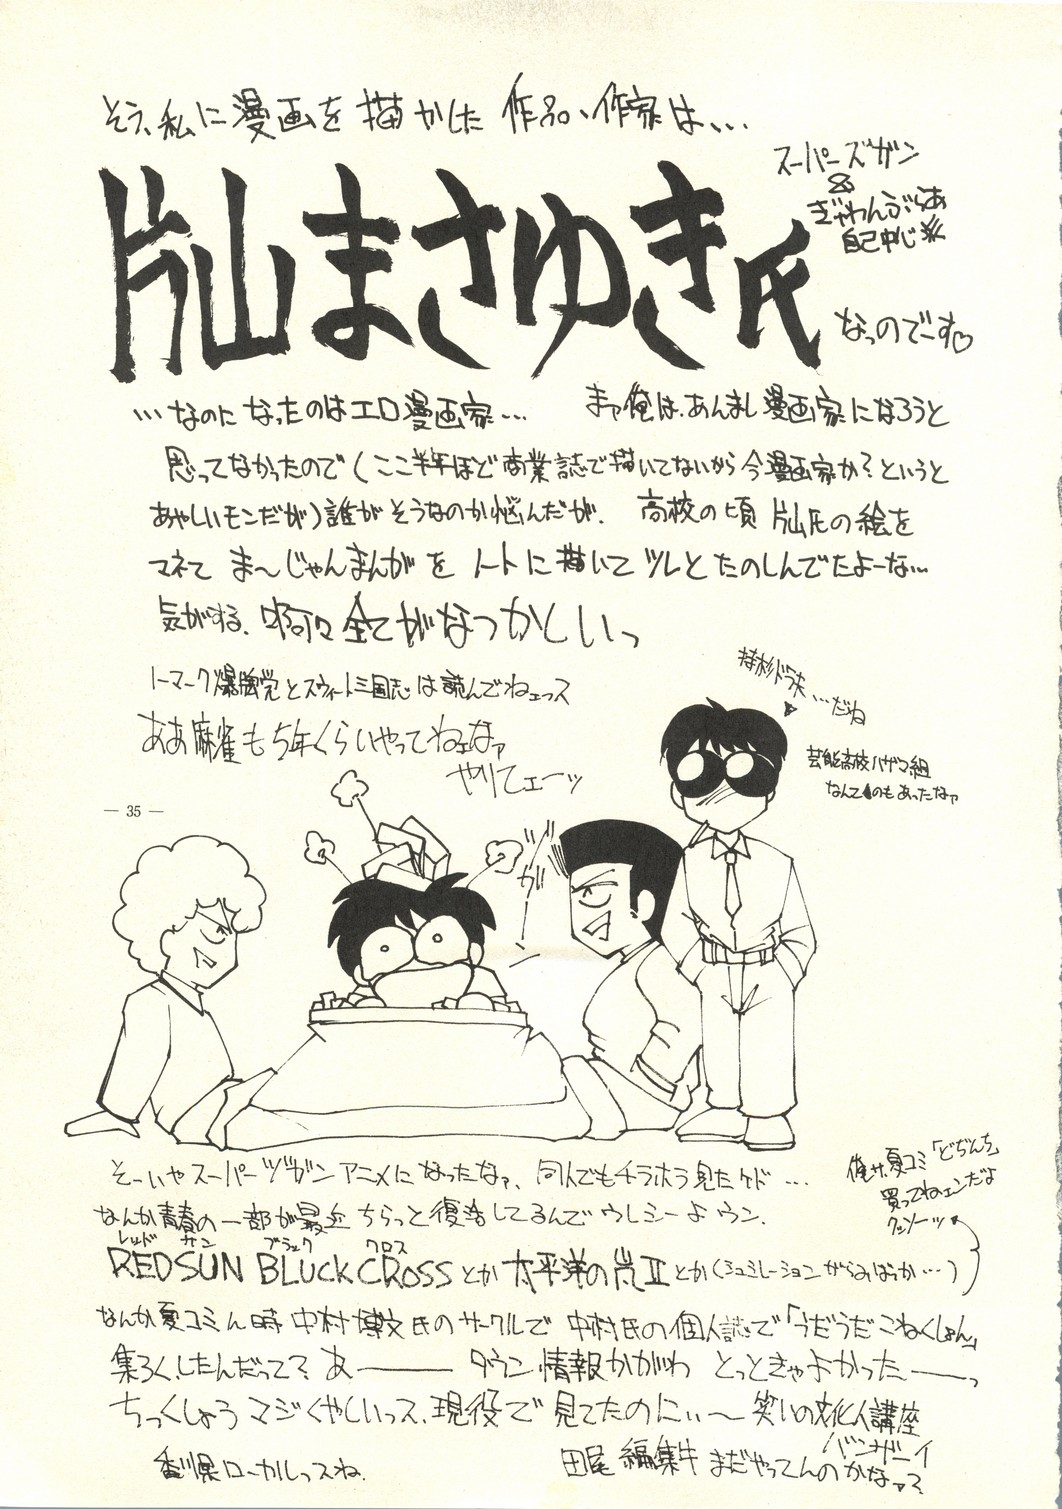 そう、私に漫画を描かした作品、作家は、、、
スーパーズガン
&
ぎゃわんぶらあ
自己中心派
片山まさゆき氏
なっのでーす♡
…なのになったのはエロ漫画家…
まァ俺は、あんまし漫画家になろうと
思ってなかったので(ここ半年ほど商業誌で描いてないから今漫画家か?というと
あやしいモンだが)誰がそうなのか悩んだが、高校の頃片山氏の絵を
マネてま〜じゃんまんがをノートに描いてツレとたのしんでたよーな…
気がする、啊々全てがなつかしいっ
トーマーク爆弾党とスウィート三国志は読んでねェっス
ああ麻雀も5年くらいやってねェなァ
やりてェーッ
…だね
芸能高校ハザマ組
なんてのもあったなァ
— 35 —
ガーン
そーいやスーパーヅガンアニメになったなァ、同人でもチラホラ見たケド…
俺サ、夏コミ「どぢんち」
買ってねェンだよ
クッソーッ
なんか青春の一部が最近ちらっと復活してるんでウレシーようン、
レッド サン ブラック クロス
RED SUN BLUCK CROSSとか太平洋の嵐Ⅱとか(シュミレーションがらみばっか…)
なんか夏コミん時中村博文氏のサークルで中村氏の個人誌で「うだうだこねくしょん」
集ろくしたんだって?あ――― タウン情報かがわ とっときゃよかった――っ
ちっくしょうマジくやしいっス、現役で見てたのにぃ〜笑いの文化人講座
バンザーイ
香川県ローカルっスね、
田尾編集牛まだやってんのかなァ?